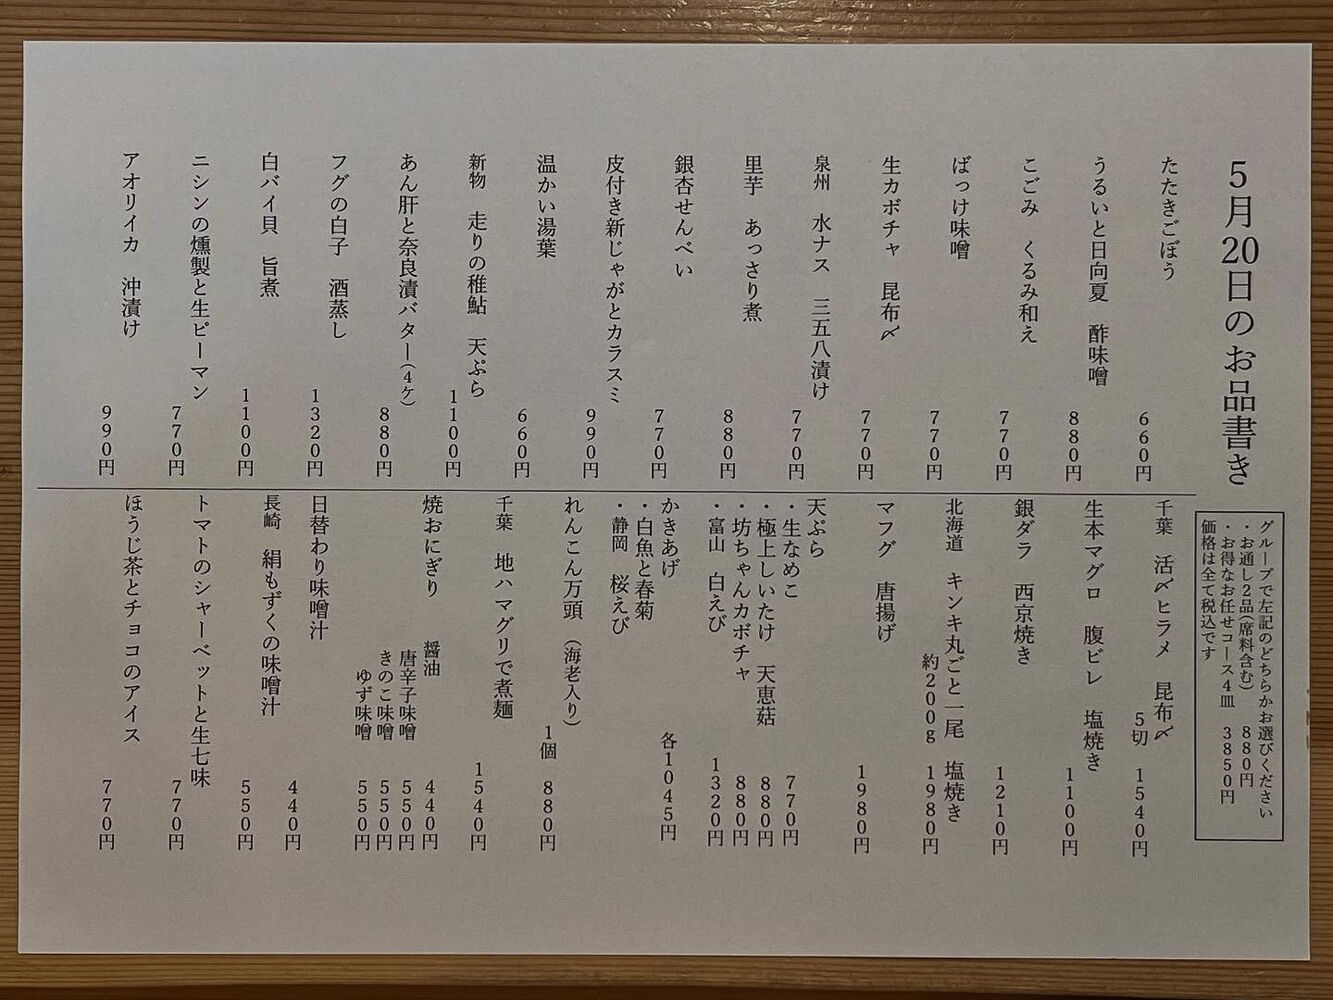 5月20日のお品書き
たたきごぼう 660円
うるいと日向夏 酢味噌 880円
こごみ くるみ和え 770円
ばっけ味噌 770円
生カボチャ 昆布〆 770円
泉州 水ナス 三五八漬け 770円
里芋 あっさり煮 880円
銀杏せんべい 770円
皮付き新じゃがとカラスミ 990円
温かい湯葉 660円
新物 走りの稚鮎 天ぷら 1100円
あん肝と奈良漬バター(4ケ) 880円
フグの白子 酒蒸し 1320円
白バイ貝 旨煮 1100円
ニシンの燻製と生ピーマン 770円
アオリイカ 沖漬け 990円
グループで左記のどちらかお選びください
・お通し2品(席料含む) 880円
・お得なお任せコース4皿 3850円
価格は全て税込です
千葉 活〆ヒラメ 昆布〆
5切 1540円
生本マグロ 腹ビレ 塩焼き 1100円
銀ダラ 西京焼き 1210円
北海道 キンキ丸ごと一尾 塩焼き
約200g 1980円
マフグ 唐揚げ 1980円
天ぷら
・生なめこ 770円
・極上しいたけ 天恵菇 880円
・坊ちゃんカボチャ 880円
・富山 白えび 1320円
かきあげ 各1045円
・白魚と春菊
・静岡 桜えび
れんこん万頭 (海老入り)
1個 880円
千葉 地ハマグリで煮麺 1540円
焼おにぎり 醤油 440円
唐辛子味噌 550円
きのこ味噌 550円
ゆず味噌 550円
日替わり味噌汁 440円
長崎 絹もずくの味噌汁 550円
トマトのシャーベットと生七味 770円
ほうじ茶とチョコのアイス 770円